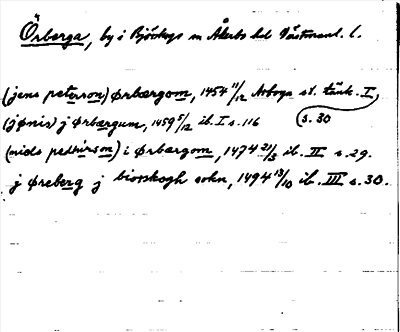 Örberga, by i Björskogs sn Åkerbo hd Västmanl. l.
(jens peterson) Ørbærgom, 1454 11/12 Arboga st. tänk. I,
s. 30
(jønis) j Ørbærgum, 1459 5/12 ib. I s. 116
(nids pedhirson) i Ørbærgom, 1474 21/3 ib. II s. 29.
j Øreberg j biorskogh sokn, 1494 13/10 ib. III s. 30.